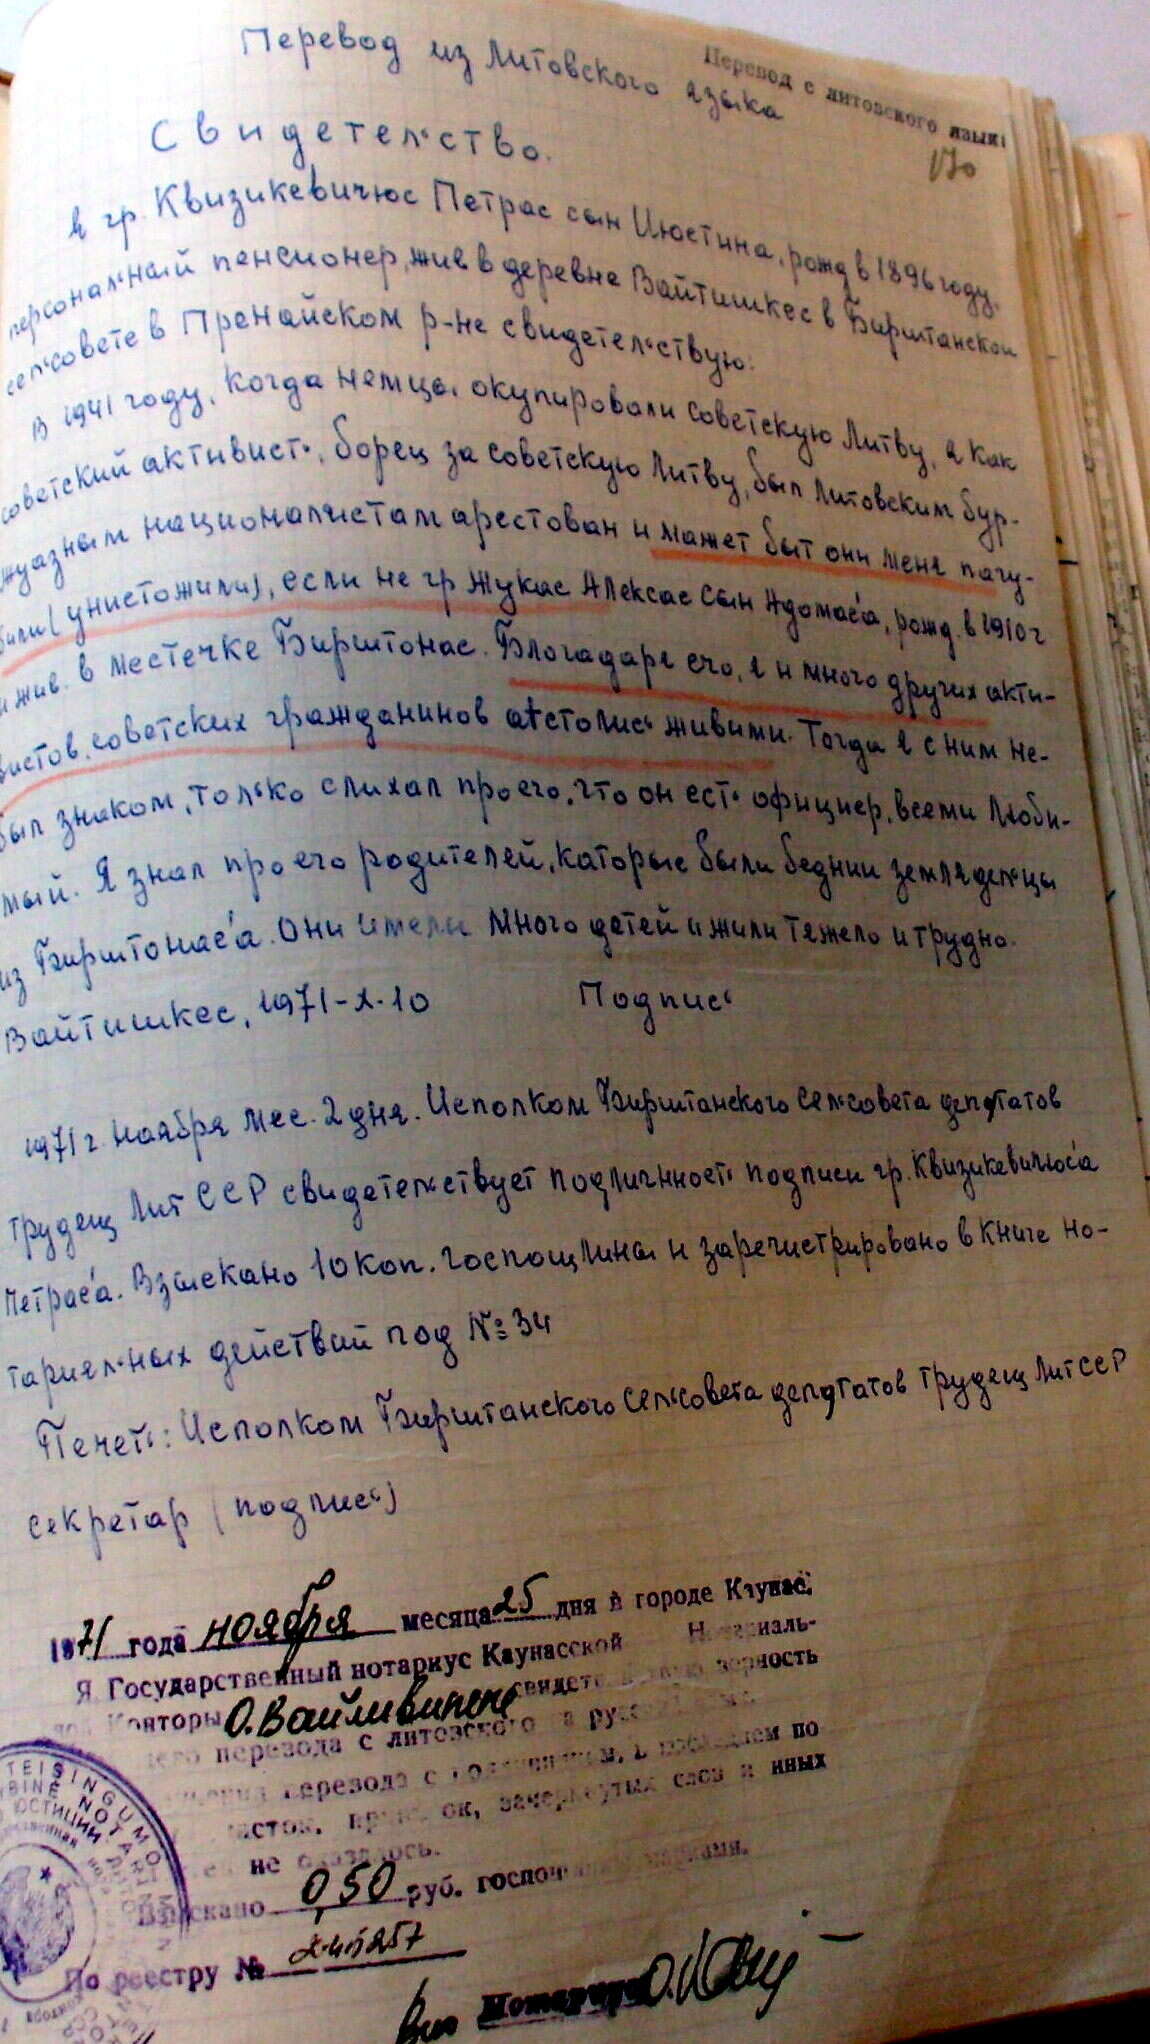 Перевод с литовского языка
Перевод из литовского языка
170
Свидетельство.
Я гр. Квизикевичюс Петрас сын Июстина, рожд в 1896 году,
персональный пенсионер, жив в деревне Вайтишкес в Бирштанском
сельсовете в Пренайском р-не свидетельствую:
В 1941 году, когда немцы окупировали Советскую Литву, я как
советский активисть, борец за советскую Литву, был Литовским бур-
жуазным националистам арестован и мажет быт они меня пагу-
били (унистожили), если не гр Жукас Алексас сын Адомас'а, рожд. в 1910 г
и жив. в местечке Бирштонас. Благадаря его, я и много других акти-
вистов, советских гражданинов астолись живыми. Тогда я с ним не-
был знаком, только слихал про его, что он есть официер, всеми люби-
мый. Я знал про его родителей, каторые были беднии земляделцы
из Бирштонас'а. Они имели много детей и жили тяжело и трудно.
Вайтишкес, 1971-X-10 Подпись
1971 г. ноября мес. 2 дня. Исполком Бирштанского сельсовета депутатов
трудящ Лит ССР свидетельствует подлинность подписи гр. Квизикевичюс'а
Петрас'а. Взыскано 10 коп. госпощлины и зарегистрировано в книге но-
тариальных действий под № 34
Печеть: Исполком Бирштанского Сельсовета депутатов трудящ Лит ССР
Секретар (подпись)
1971 года ноября месяца 25 дня в городе Каунас.
Я Государственный нотариус Каунасской Нотариаль-
ной Конторы О. Вайливичене свидетельствую верность
перевода с литовского на русский
перевода с подлинником, в последнем по
чисток, приписок, зачеркнутых слов и иных
не оказалось.
Взыскано 0,50 руб. госпошлины марками.
По реестру №
Нотариус
TEISINGUMO
ЮСТИЦИИ